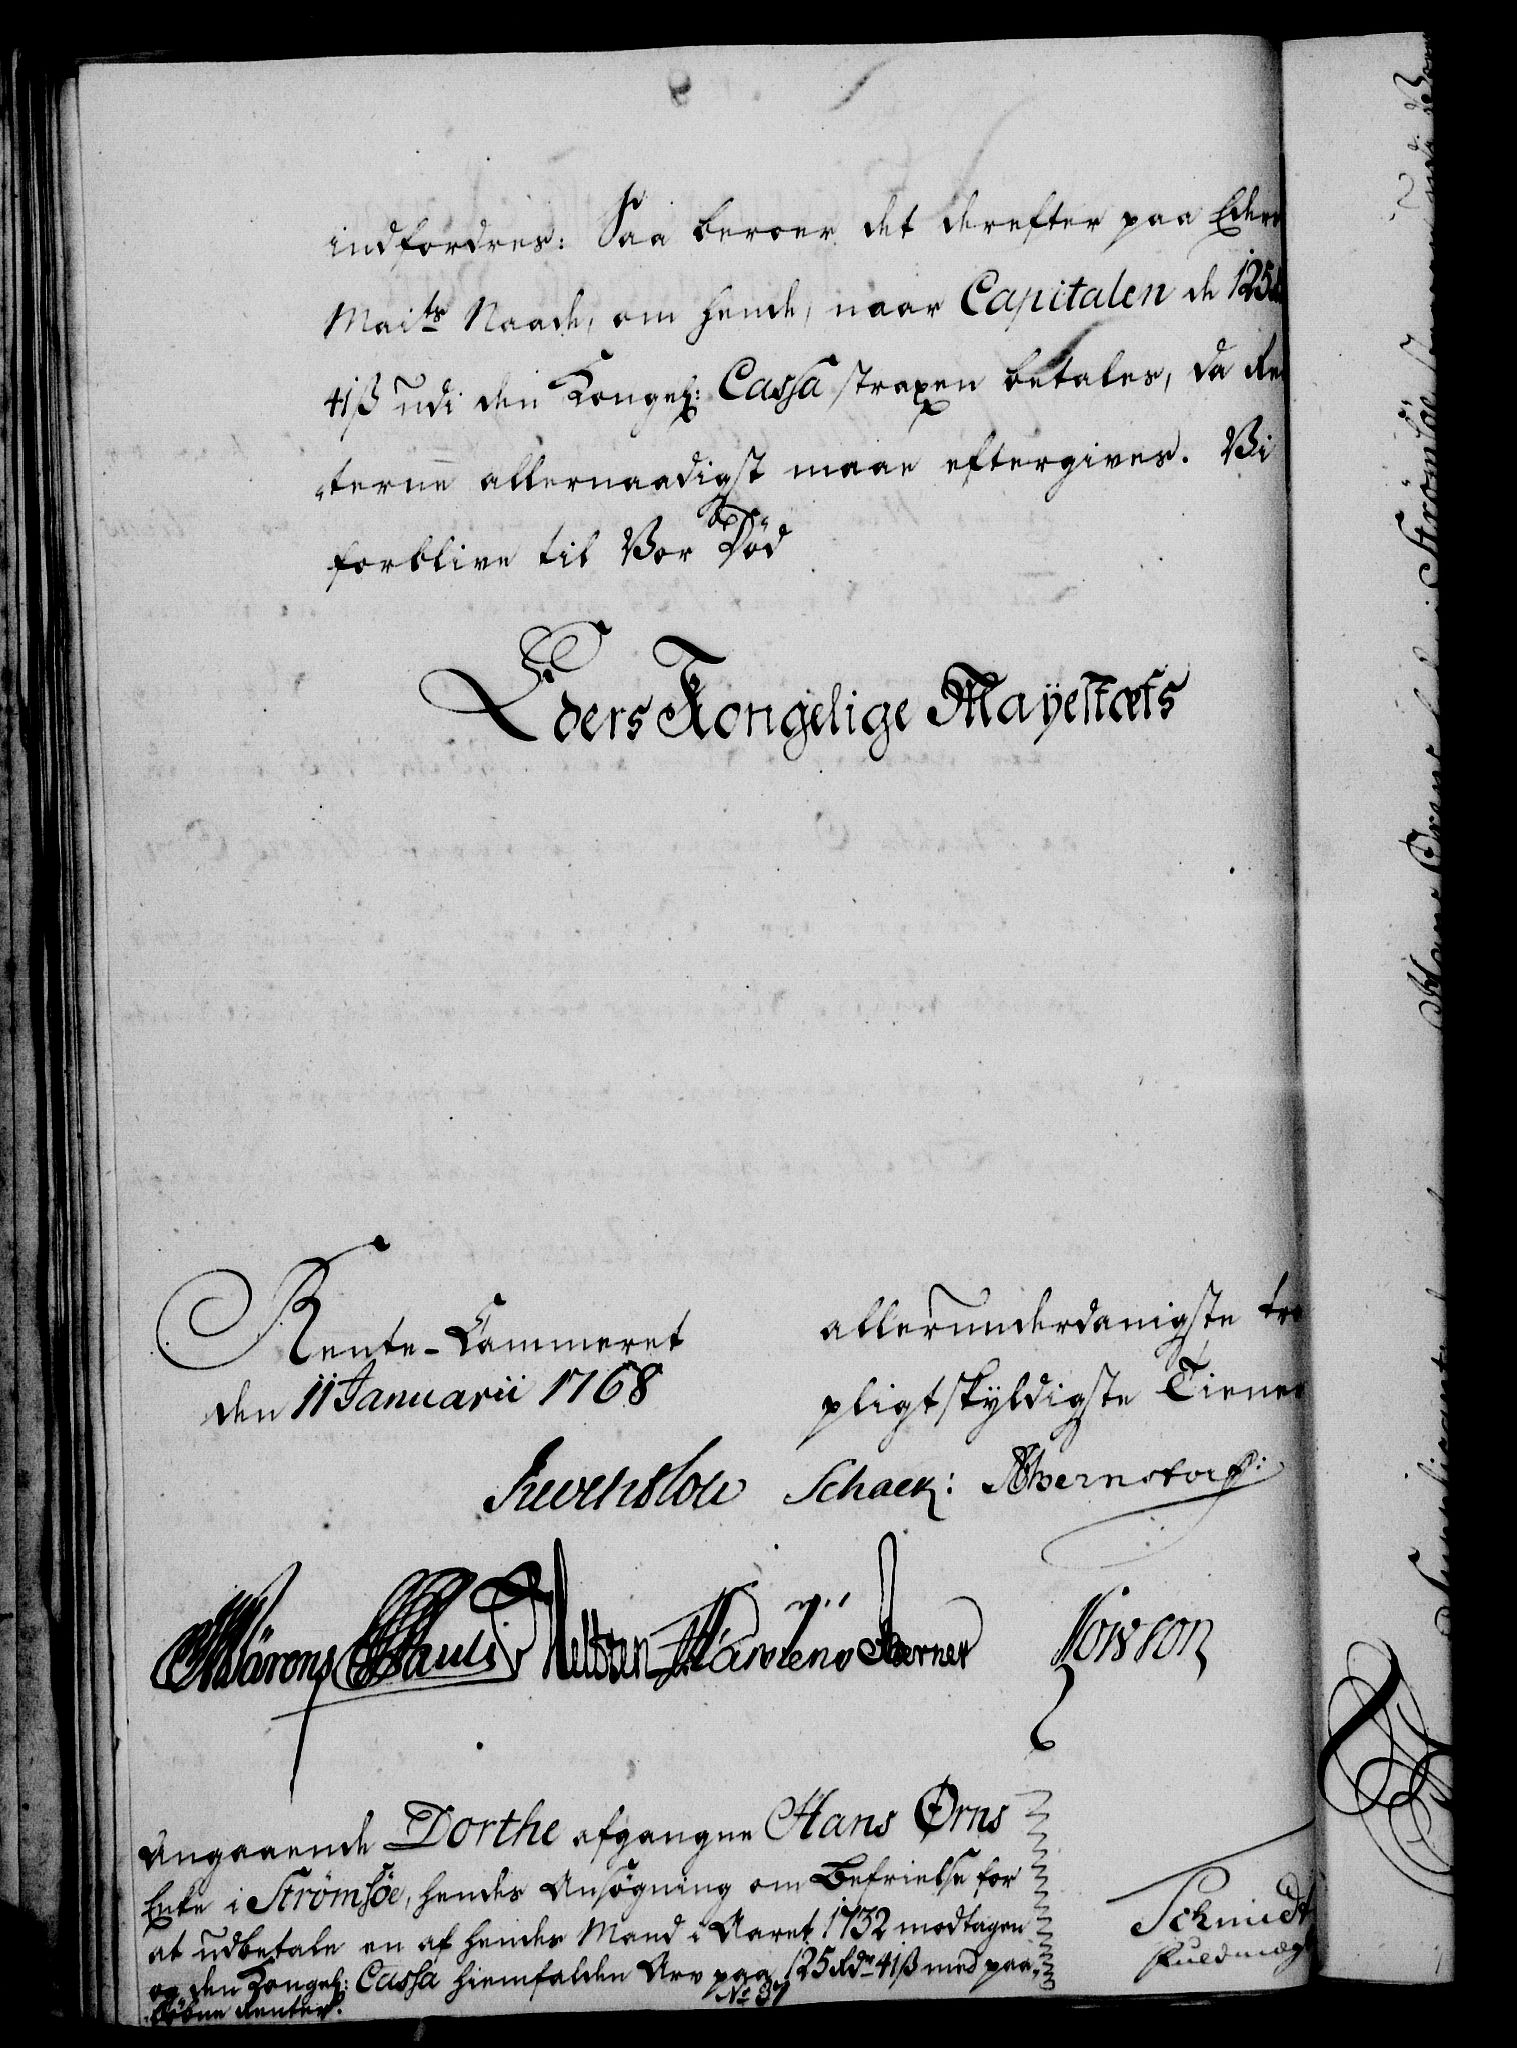 indfordres: Saa beroer det derefter paa Eders
Maits Naade, om hende, naar Capitalen de 125
41ß udi den Kongel: Cassa straxen betales, da Ren
terne allernaadigst maae eftergives. Vi
forblive til Vor Død
Eders Kongelige Mayestæts
Rente-Cammeret
den 11 Januarii 1768
allerunderdanigste tro
pligtskyldigste Tiener
Reventlou Schack: Bernstorff:
Pauli Neltzen Berner
Dorthe afgangne Hans Ørns
Angaaende
Enke i Strömsöe, hendes Ansøgning om Befrielse for
at udbetale en af hendes Mand i Aaret 1732 modtagen
og den Kongel: Cassa hiemfalden Arv paa 125 rdr 41ß med paa-
løbne Renter.
No 37
Schmidt
Fuldmægt